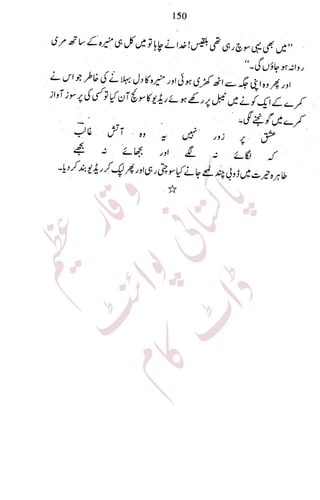 150
”میں بھی یہی سوچ رہی تھی بلقیس! خدا نے چاہا تو میں کل ہی منیرہ کے ساتھ مری
روانہ ہو جاؤں گی۔“
اور پھر وہ اپنی جگہ سے اٹھ کھڑی ہوئی اور منیرہ کا دل بہلانے کی خاطر جو اس نے
کمرے کے ایک کونے میں ٹیبل پر رکھے ہوئے ریڈیو کا سوئچ آن کیا تو کسی کی پر سوز آواز
کمرے میں گونجنے لگی۔
عشق پر زور نہیں یہ وہ آتش غالب
کہ لگائے نہ لگے اور بجھائے نہ بجھے
طاہرہ حیرت میں ڈوبی چند لمحے جانے کیا سوچتی رہی اور پھر لپک کر ریڈیو بند کر دیا۔
☆
وقار عظیم
پاکستانی پوائنٹ
ڈاٹ کام